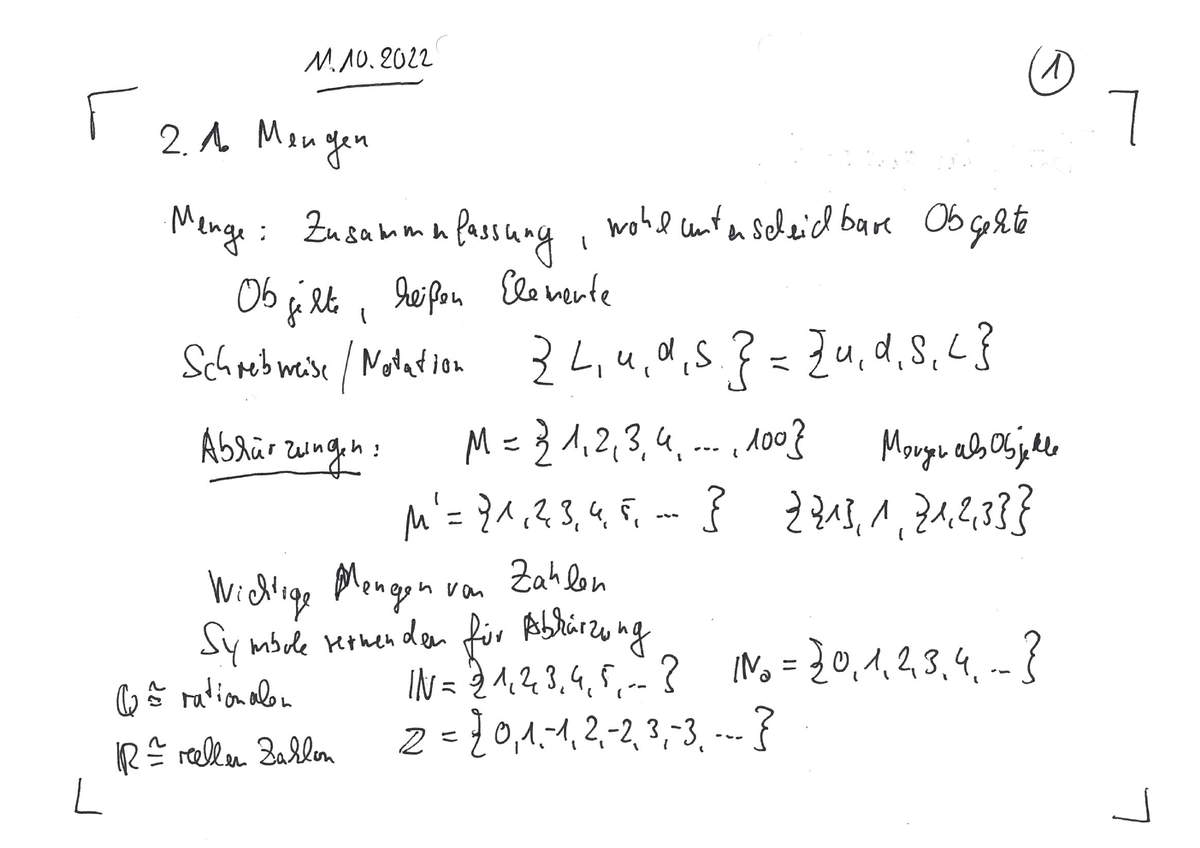 11.10.2022
(1)
2.1. Mengen
Menge: Zusammenfassung, wohlunterscheidbare Objekte
Objekte, heißen Elemente
Schreibweise/Notation {L, u, d, S} = {u, d, S, L}
Abkürzungen: M = {1,2,3,4, ..., 100} Mengen als Objekte
M' = {1,2,3,4,5, ... } {{1}, 1, {1,2,3}}
Wichtige Mengen von Zahlen
Symbole verwenden für Abkürzung
ℚ ≅ rationalen ℕ = {1,2,3,4,5,...} ℕ₀ = {0,1,2,3,4,...}
ℝ ≅ reellen Zahlen Z = {0,1,-1,2,-2,3,-3, ... }